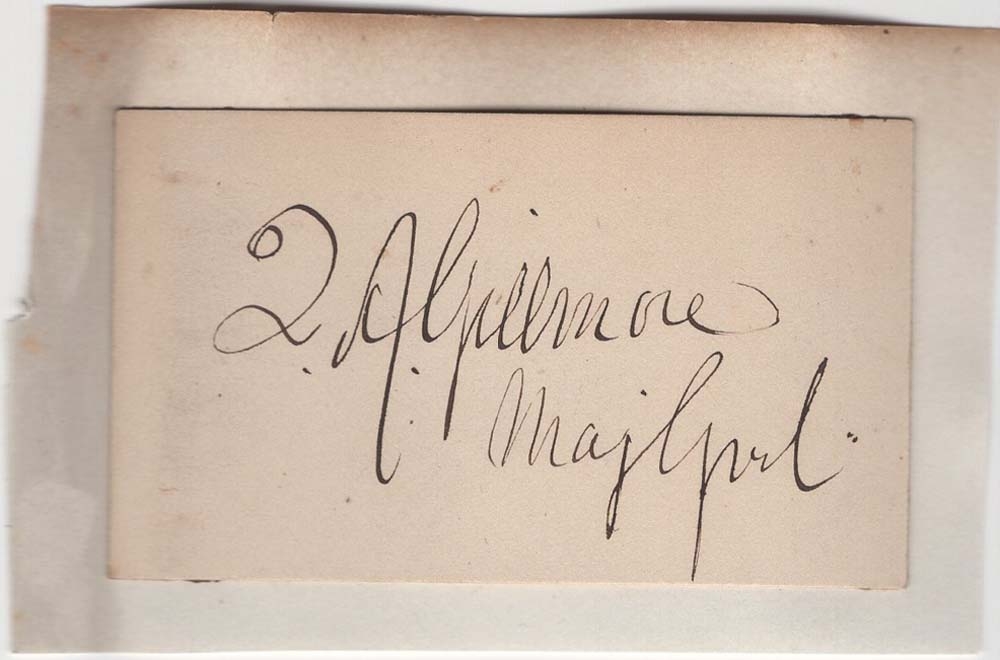 Q. A. Gillmore
Maj Genl.